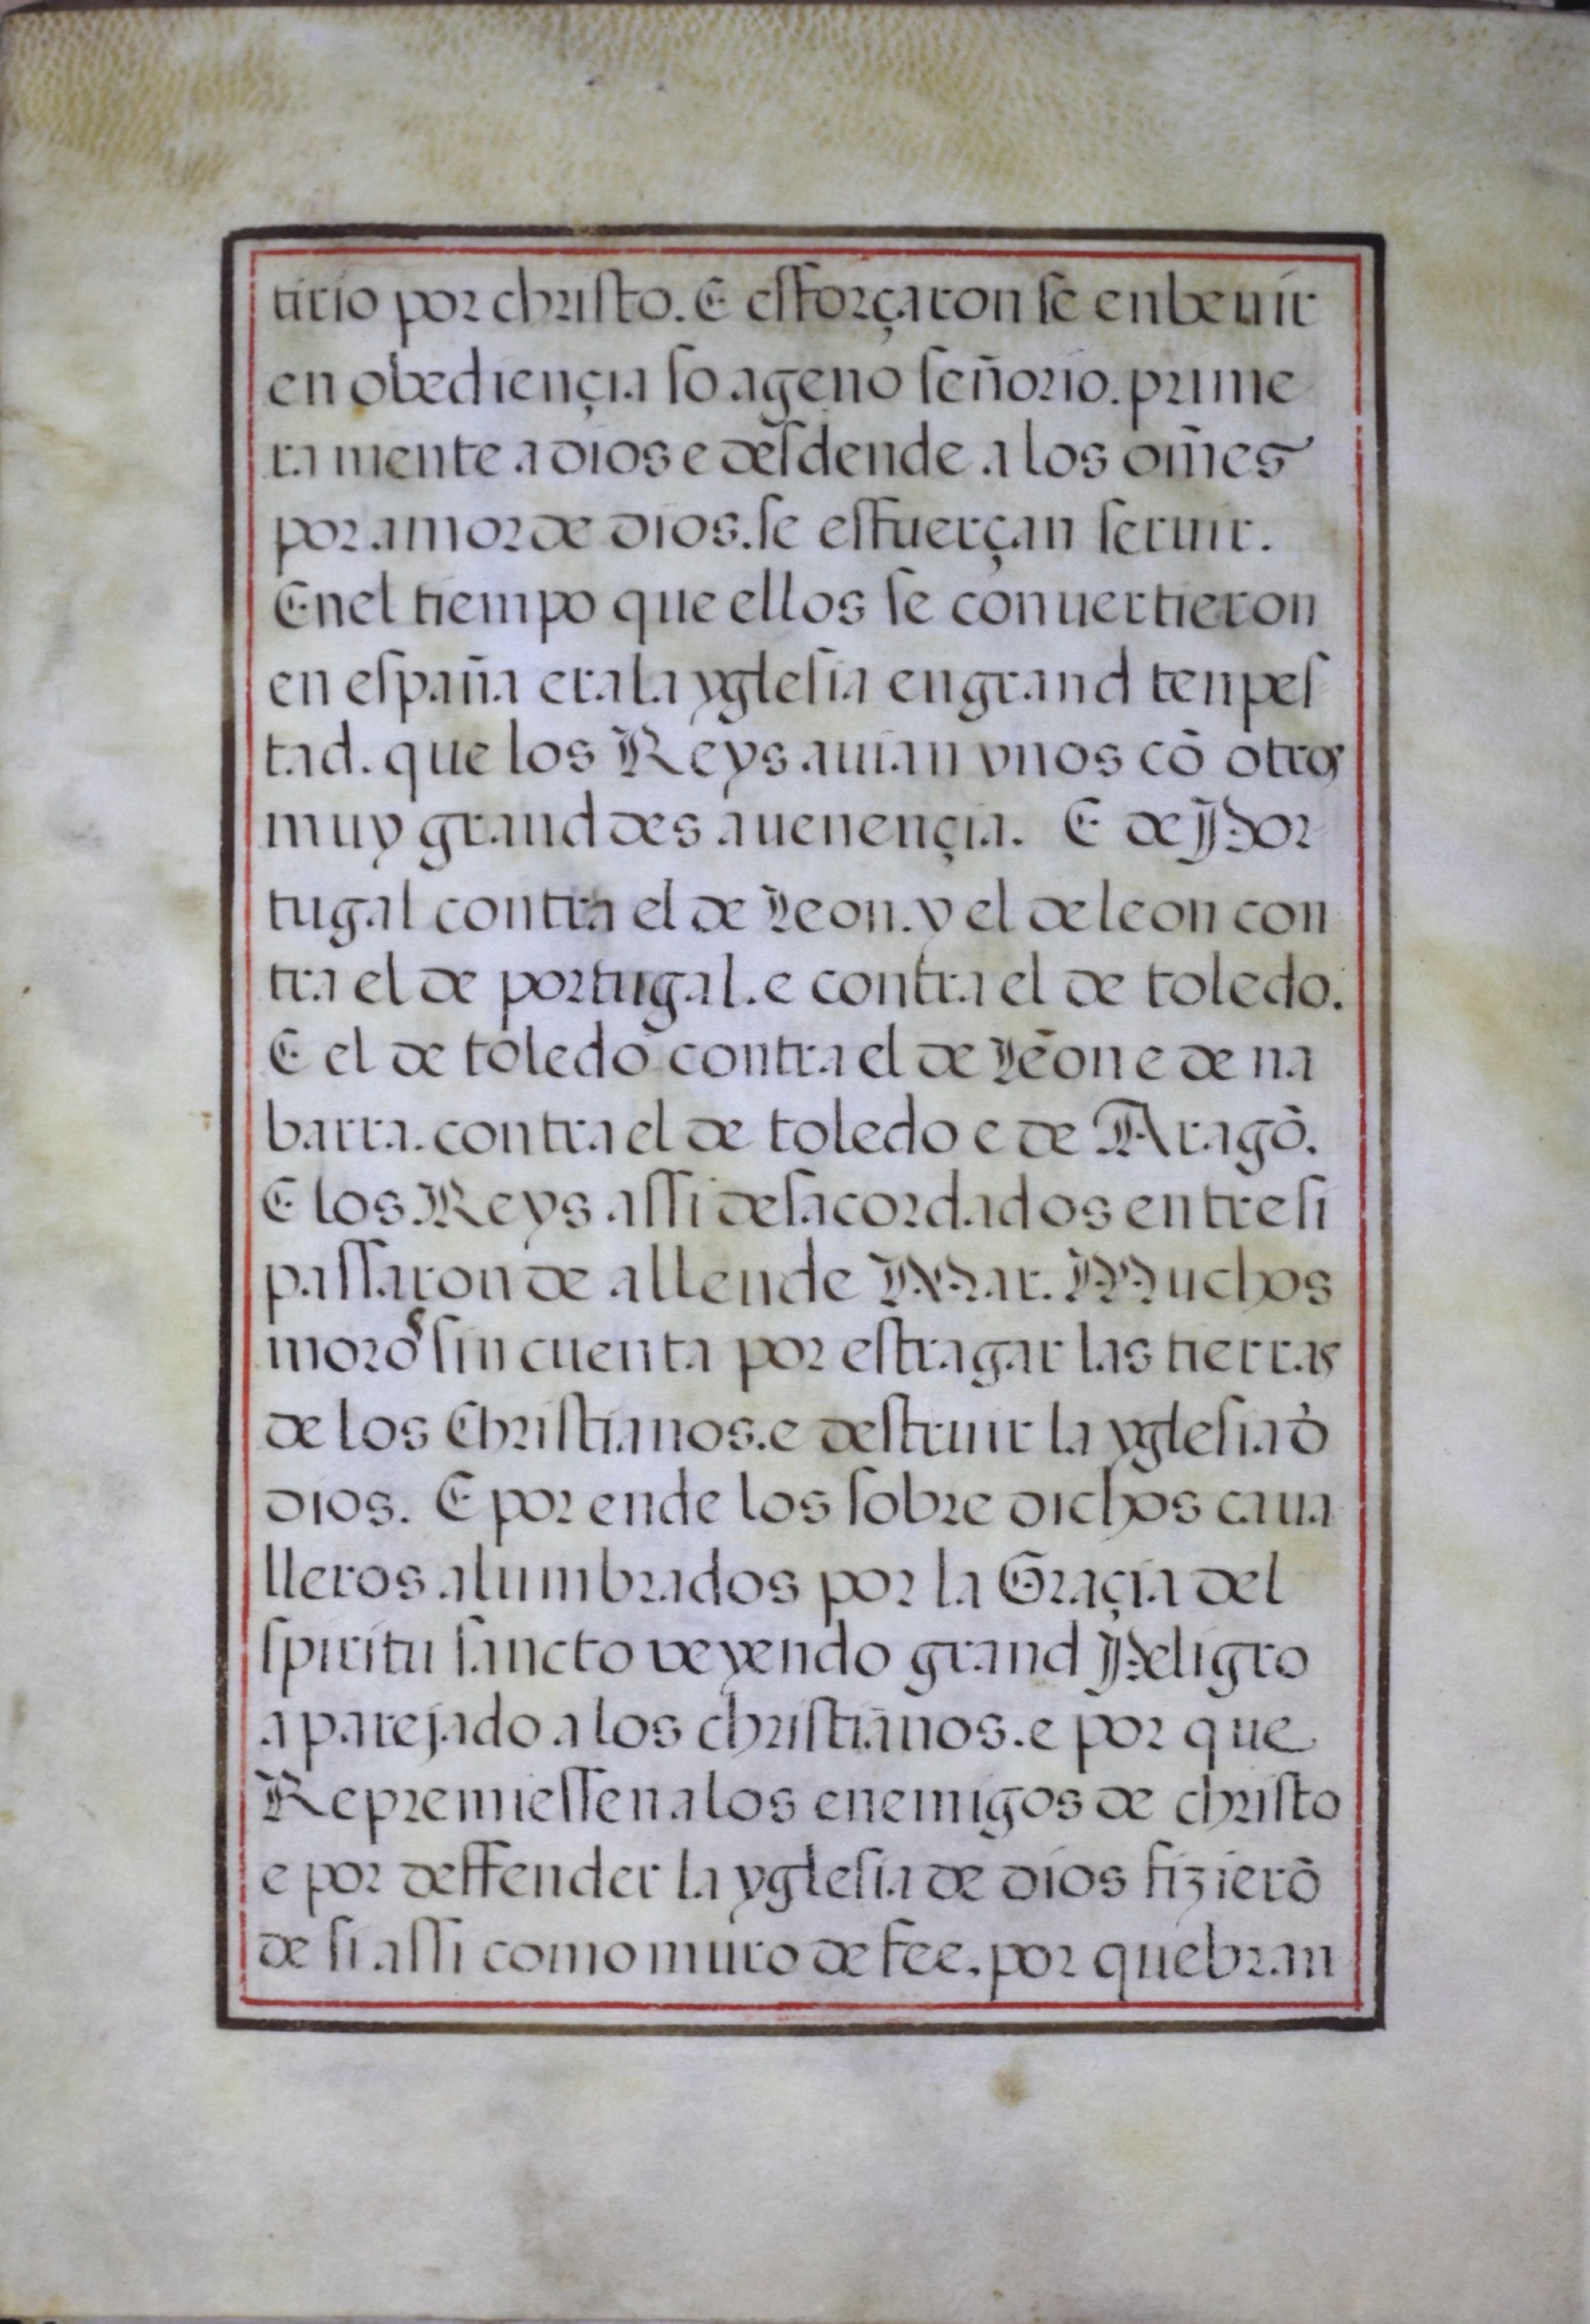 tirio por christo. E esforçaron se en beuir
en obediençia so ageno señorio. prime
ra mente a dios e desdende a los om̃es
por amor de dios. se esfuerçan seruir.
En el tiempo que ellos se conuertieron
en españa era la yglesia en grand tenpes
tad. que los Reys auian vnos cõ otros
muy grand des auenençia. E de Por
tugal contra el de Leon. y el de leon con
tra el de portugal. e contra el de toledo.
E el de toledo contra el de Leõn e de na
barra. contra el de toledo e de Aragõ.
E los Reys assi desacordados entre si
passaron de allende Mar. Muchos
moros sin cuenta por estragar las tierras
de los Christianos. e destruir la yglesia d̃
dios. E por ende los sobre dichos caua
lleros alumbrados por la Graçia del
spiritu sancto veyendo grand Peligro
aparejado a los christianos. e por que
Repremiessen a los enemigos de christo
e por deffender la yglesia de dios fizierõ
de si assi como muro de fee. por quebran